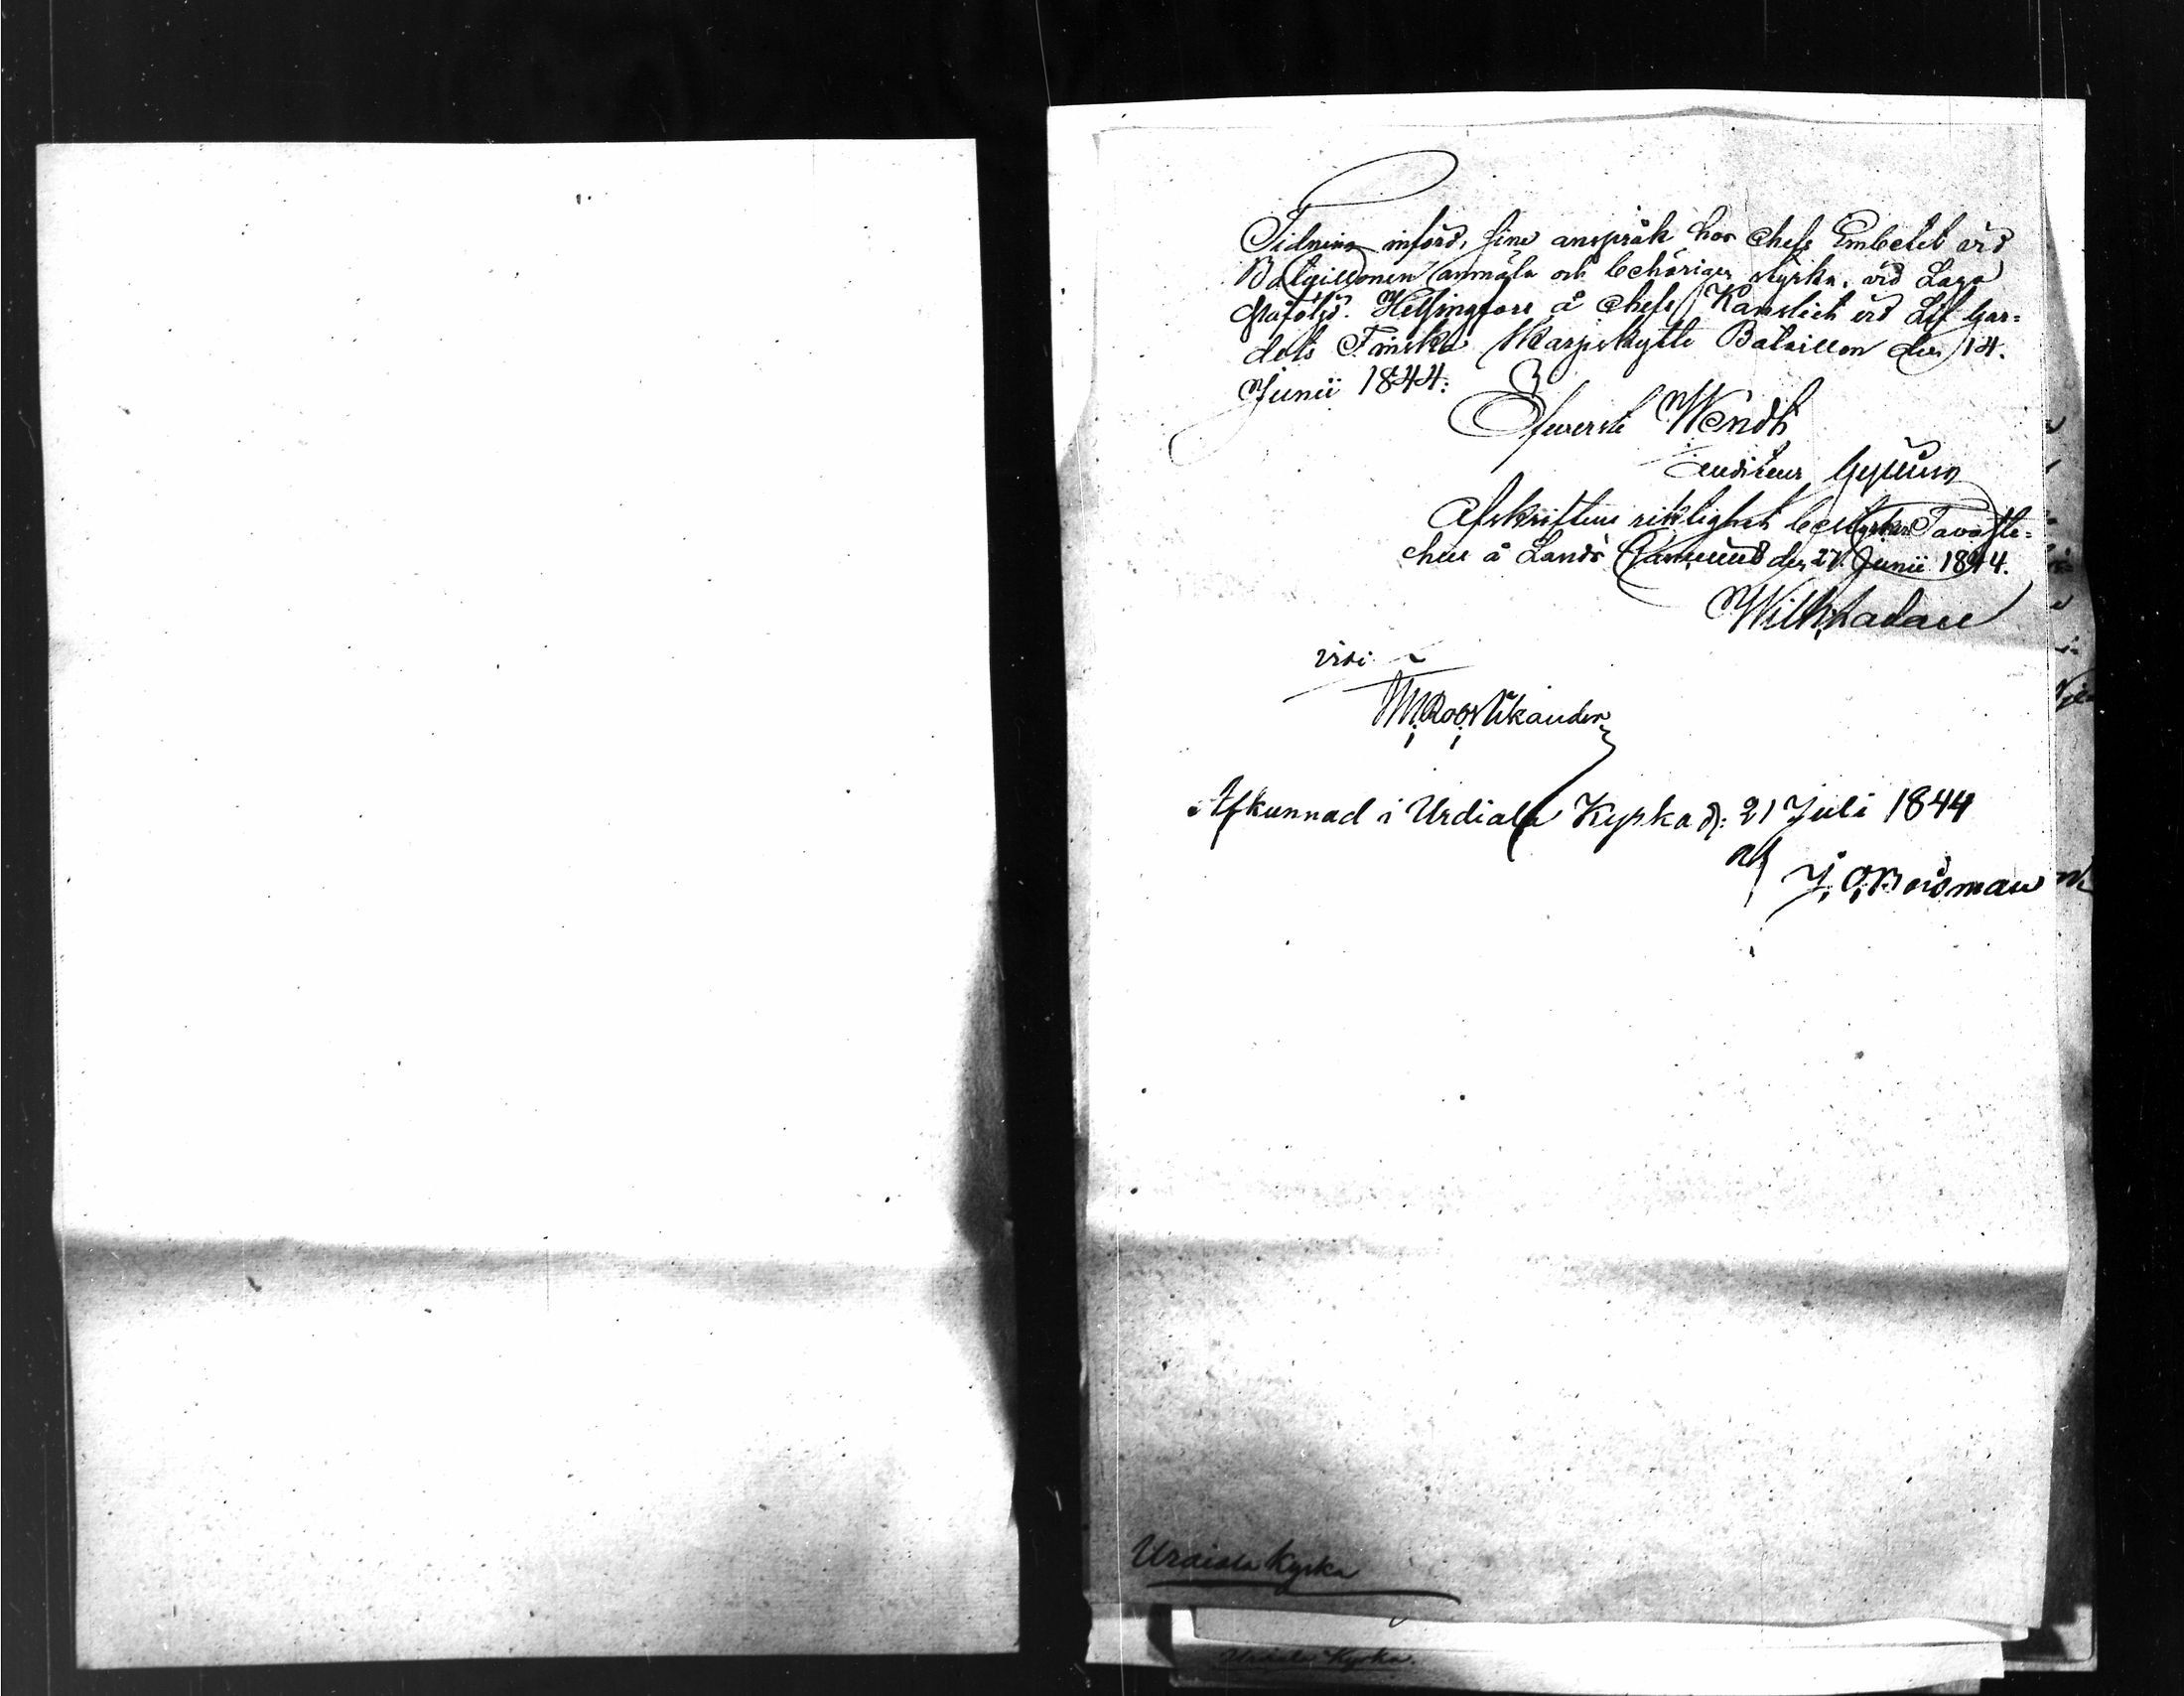 Tidning införd, sine anspråk hos Chefs Embetet vid
Bataillonen anmäla och behörigen styrka, vid Laga
påföljd. Helsingfors å Chefs Kansliet vid Lif Gar-
dets Finska Skarpskytte Bataillon den 14.
Junii 1844.
Öfwerste Wendt
Auditeur
Afskriftens riktighet bestyrker Tavaste-
hus å Lands Canceliet den 27. Junii 1844.
Wilh:
vidi
Afkunnad i Urdiala Kyrka d: 21 Juli 1844
af J. O. Boisman
Urdiala Kyrka
Urdiala Kyrka.